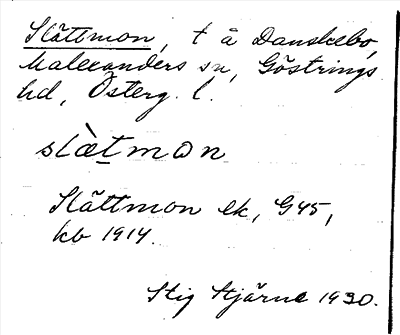 Slättmon, t å Danskebo,
Malexanders sn, Göstrings
hd, Österg. l.
slæ̀t̲mɷn
Slättmon ek, G45,
kb 1914.
Stig Stjärne 1930.